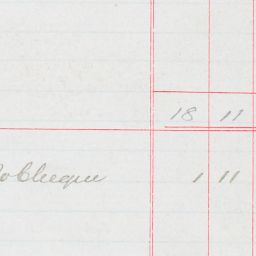 18 11
To Cheque 1 11